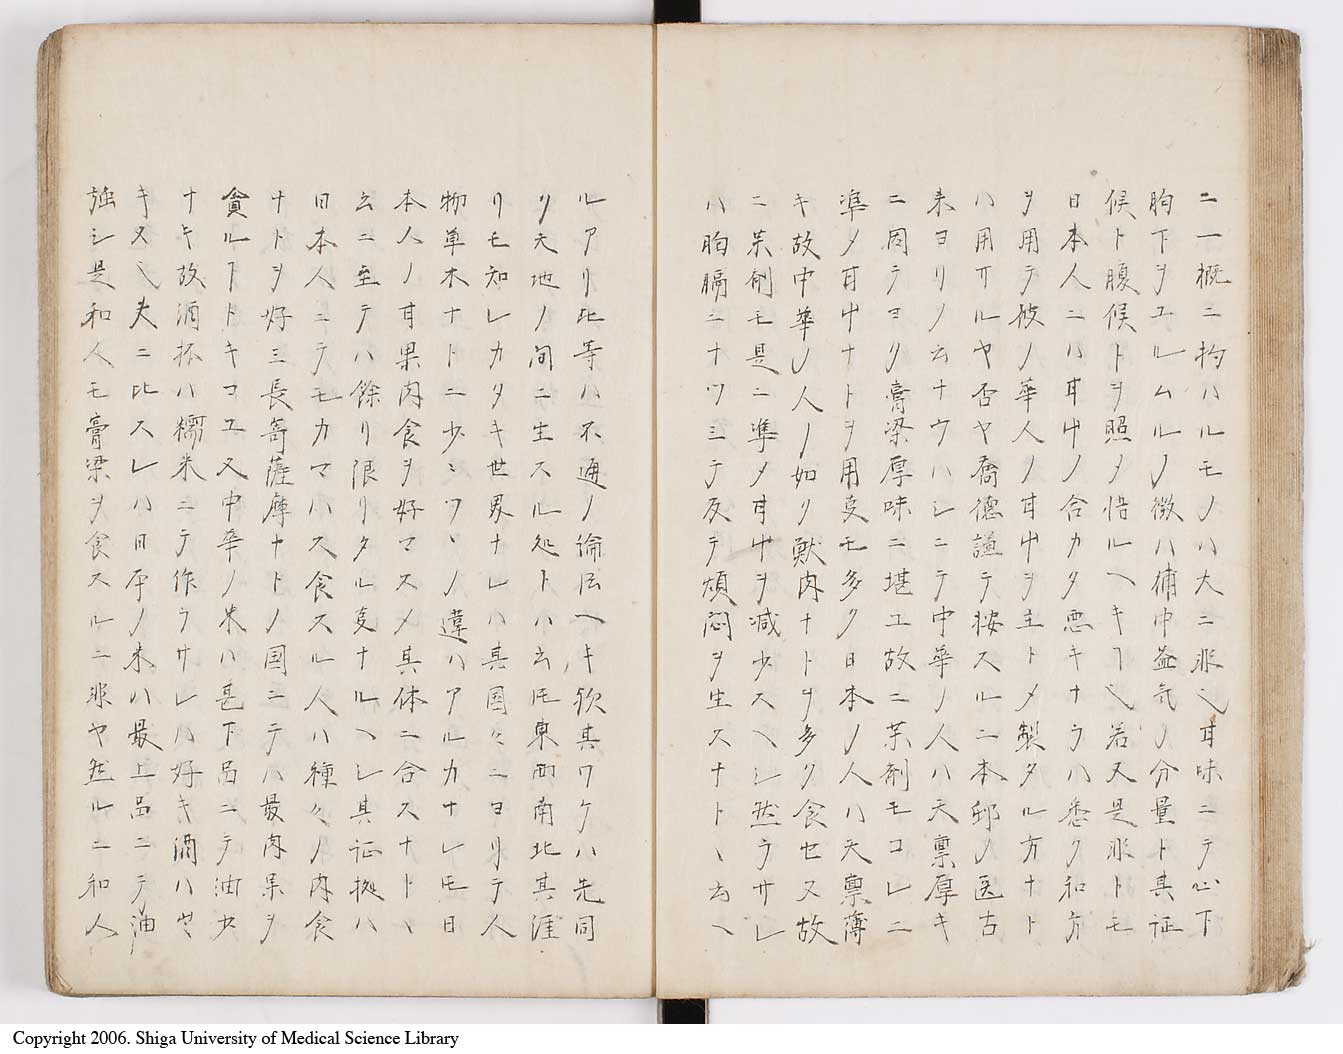 ニ一概ニ拘ハルモノハ大ニ非也甘味ニテ心下
胸下ヲユルムルノ徴ハ補中益気ノ分量ト其証
候ト腹候トヲ照メ悟ルヘキヿ也若又是非トモ
日本人ニハ甘艸ノ合カタ悪キナラハ悉ク和方
ヲ用テ彼ノ華人ノ甘艸ヲ主トメ製タル方ナト
ハ用サルヤ否ヤ喬德謹テ按スルニ本邦ノ医古
来ヨリノ云ナウハシニテ中華ノ人ハ天稟厚キ
ニ因テヨク膏粱厚味ニ堪エ故ニ茱剤モコレニ
準メ甘艸ナトヲ用夏モ多ク日本ノ人ハ天稟薄
キ故中華ノ人ノ如ク獣肉ナトヲ多ク食セス故
ニ茱剤モ是ニ準メ甘艸ヲ减少スヘシ然ラサレ
ハ胸膈ニナツミテ反テ煩悶ヲ生スナトヽ云ヘ
ルアリ此等ハ不通ノ倫伝ヘキ欤其ワケハ先同
リ天地ノ間ニ生スル処トハ云𪜈東西南北其涯
リモ知レカタキ世界ナレハ其国々ニヨリテ人
物草木ナトニ少〻ツヽノ違ハアルカナレ𪜈日
本人ノ甘果肉食ヲ好マスメ其体ニ合スナトヽ
云ニ至テハ餘リ限リタル夏ナルヘシ其証拠ハ
日本人ニテモカマハス食スル人ハ種々ノ肉食
ナトヲ好ミ長﨑薩摩ヤトノ国ニテハ最肉杲ヲ
貪ルヿトキコエ又中華ノ米ハ甚下品ニテ油少
ナキ故酒抔ハ糯米ニテ作ラサレハ好キ酒ハ出
キス也夫ニ比スレハ日本ノ米ハ最上品ニテ油
強シ是和人モ膏粱ヲ食スルニ非ヤ然ルニ和人